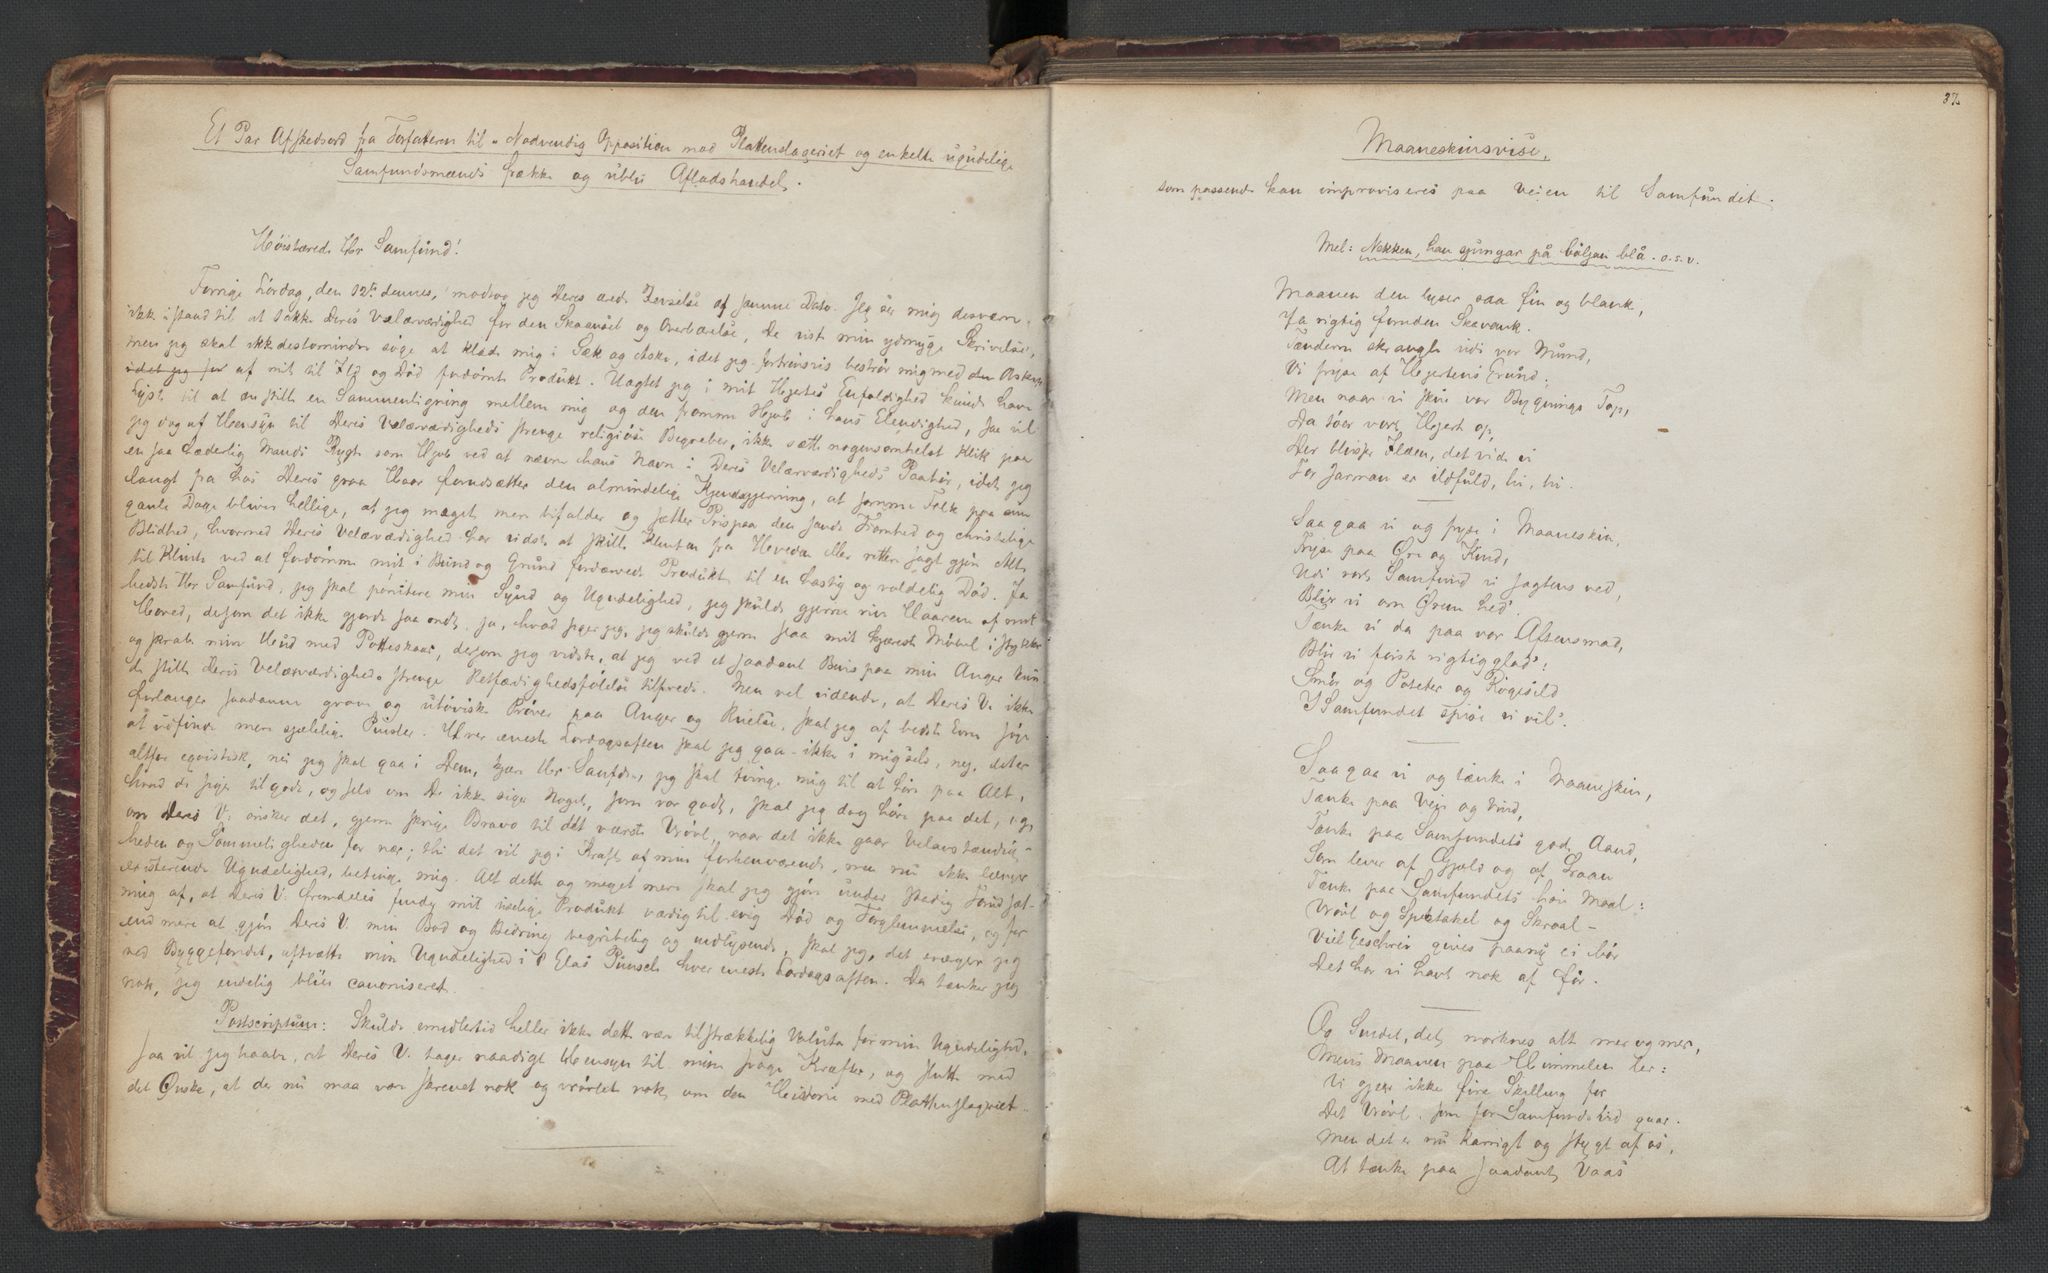 Et Par Afskedsord fra Forfatteren til "Nødvendig Opposition mod Plattenslageriet og enkelte ugudelige
Samfundsmænds frække og ublu Afladshandel.
Høistærede Hr Samfund!
Forrige Lørdag, den 12te dennes, modtog jeg Deres ærede Tilskrivelse af samme Dato. Jeg ser mig desværre
ikke istand til at takke Deres Velærværdighed for den Skaansel og Overbærelse, De viste min ydmyge Skrivelse,
men jeg skal ikkedestomindre søge at klæde mig i Sæk og Aske, idet jeg fortrinsvis bestrør mig med den Aske
idet jeg før af mit til Ild og Død fordømte Produkt. Uagtet jeg i mit Hjertes Enfoldighed kunde have
Lyst til at anstille en Sammenligning mellem mig og den fromme Hjob i hans Elendighed, saa vil
jeg dog af Hensyn til Deres Velærværdigheds strenge religiøse Begreber, ikke sætte nogensomhelst Klik paa
en saa hæderlig Mands Rygte som Hjob ved at nævne hans Navn i Deres Velærværdigheds Paahør, idet jeg
langt fra hos Deres graa Haar forudsætter den almindelige Kjendsgjerning, at somme Folk paa sine
gamle Dage bliver hellige, at jeg meget mere bifalder og sætter Pris paa den sande Fromhed og christelige
Blidhed, hvormed Deres Velærværdighed har vidst at skille Klinten fra Hveden eller rettere sagt gjøre Alt
til Klinte ved at fordømme mit i Bund og Grund fordærvede Produkt til en hastig og voldelig Død. Ja
bedste Hr Samfund, jeg skal pönitere min Synd og Ugudelighed, jeg skulde gjerne rive Haarene af mit
Hoved, dersom det ikke gjorde saa ondt, ja, hvad siger jeg, jeg skulde gjerne slaa mit kjæreste Møbel i Stykker
og skrabe min Hud med Potteskaar, dersom jeg vidste, at jeg ved et saadant Bevis paa min Anger kun-
de stille Deres Velærværdigheds strenge Retfærdighedsfølelse tilfreds. Men vel vidende, at Deres V. ikke
forlanger saadanne grove og udvortes Prøver paa Anger og Ruelse, skal jeg af bedste Evne søge
at udfinde mere sjælelige Pinsler. Hver eneste Lørdagsaften skal jeg gaa - ikke i mig selv, nej, det er
altfor egoistisk, nei jeg skal gaa i Dem, kjære Hr Samfund, jeg skal tvinge mig til at høre paa Alt,
hvad de siger tilgode, og selv om De ikke siger Noget, som var godt, skal jeg dog høre paa det, og,
om Deres V. ønsker det, gjerne skrige Bravo til det værste Vrøvl, naar det ikke gaar Velanstændig-
heden og Sømmeligheden for nær; thi det vil jeg i Kraft af min forhenværende, men nu ikke længer
existerende Ugudelighed, betinge mig. Alt dette og meget mere skal jeg gjøre under stadig Forudsæt-
ning af, at Deres V. fremdeles finder mit uselige Produkt værdig til evig Død og Forglemmelse, og for
end mere at gjøre Deres V. min Bod og Bedring begribelig og indlysende, skal jeg, det sværger jeg
ved Byggefondet, aftvætte min Ugudelighed i 8 Glas Punsch hver eneste Lørdagsaften. Da tænker jeg
nok, jeg endelig bliver canoniseret.
Postscriptum: Skulde imidlertid heller ikke dette være tilstrækkelig Valuta for min Ugudelighed,
saa vil jeg haabe, at Deres V. tager naadigt Hensyn til mine svage Kræfter, og slutte med
det Ønske, at der nu maa være skrevet nok og vrøvlet nok om den Historie med Plattenslageriet.
37.
Maaneskinsvise,
som passende kan improviseres paa Veien til Samfundet.
Mel: Nekken, han sjungar på böljan blå. o.s.v.
Maanen den lyser saa fin og blank,
Ja rigtig foruden Skavank.
Tænderne skrangle udi vor Mund,
Vi fryse af Hjertens Grund;
Men naar vi skue vor Bygnings Top,
Da tøer vort Hjert op,
Der blusser Ilden, det vide vi
For Jarman er ildfuld, hi, hi.
Saa gaa vi og fryse i Maaneskin,
Fryse paa Øre og Kind,
Udi vort Samfund vi sagtens ved,
Blir vi om Ørene hed'.
Tænke vi da paa vor Aftensmad,
Blir vi først rigtig glad';
Smør og Poteter og Røgesild
I Samfundet spise vi vil'.
Saa gaa vi og tænke i Maaneskin,
Tænke paa Veir og Vind,
Tænke paa Samfundets gode Aand,
Som lever af Gjæld og af Laan
Tænke paa Samfundets høie Maal:
Vrøvl og Spektakel og Skraal -
Viel Geschrei gives paany ei bør
Det har vi havt nok af før.
Og Sindet, det mørknes alt mer og mer,
Mens Maanen paa Himmelen ler:
Vi gjeve ikke fire Skilling for
Det Vrøvl, som for Samfundsvid gaar.
Men det er nu karrigt og stygt af os,
At tænke paa saadant Vaas